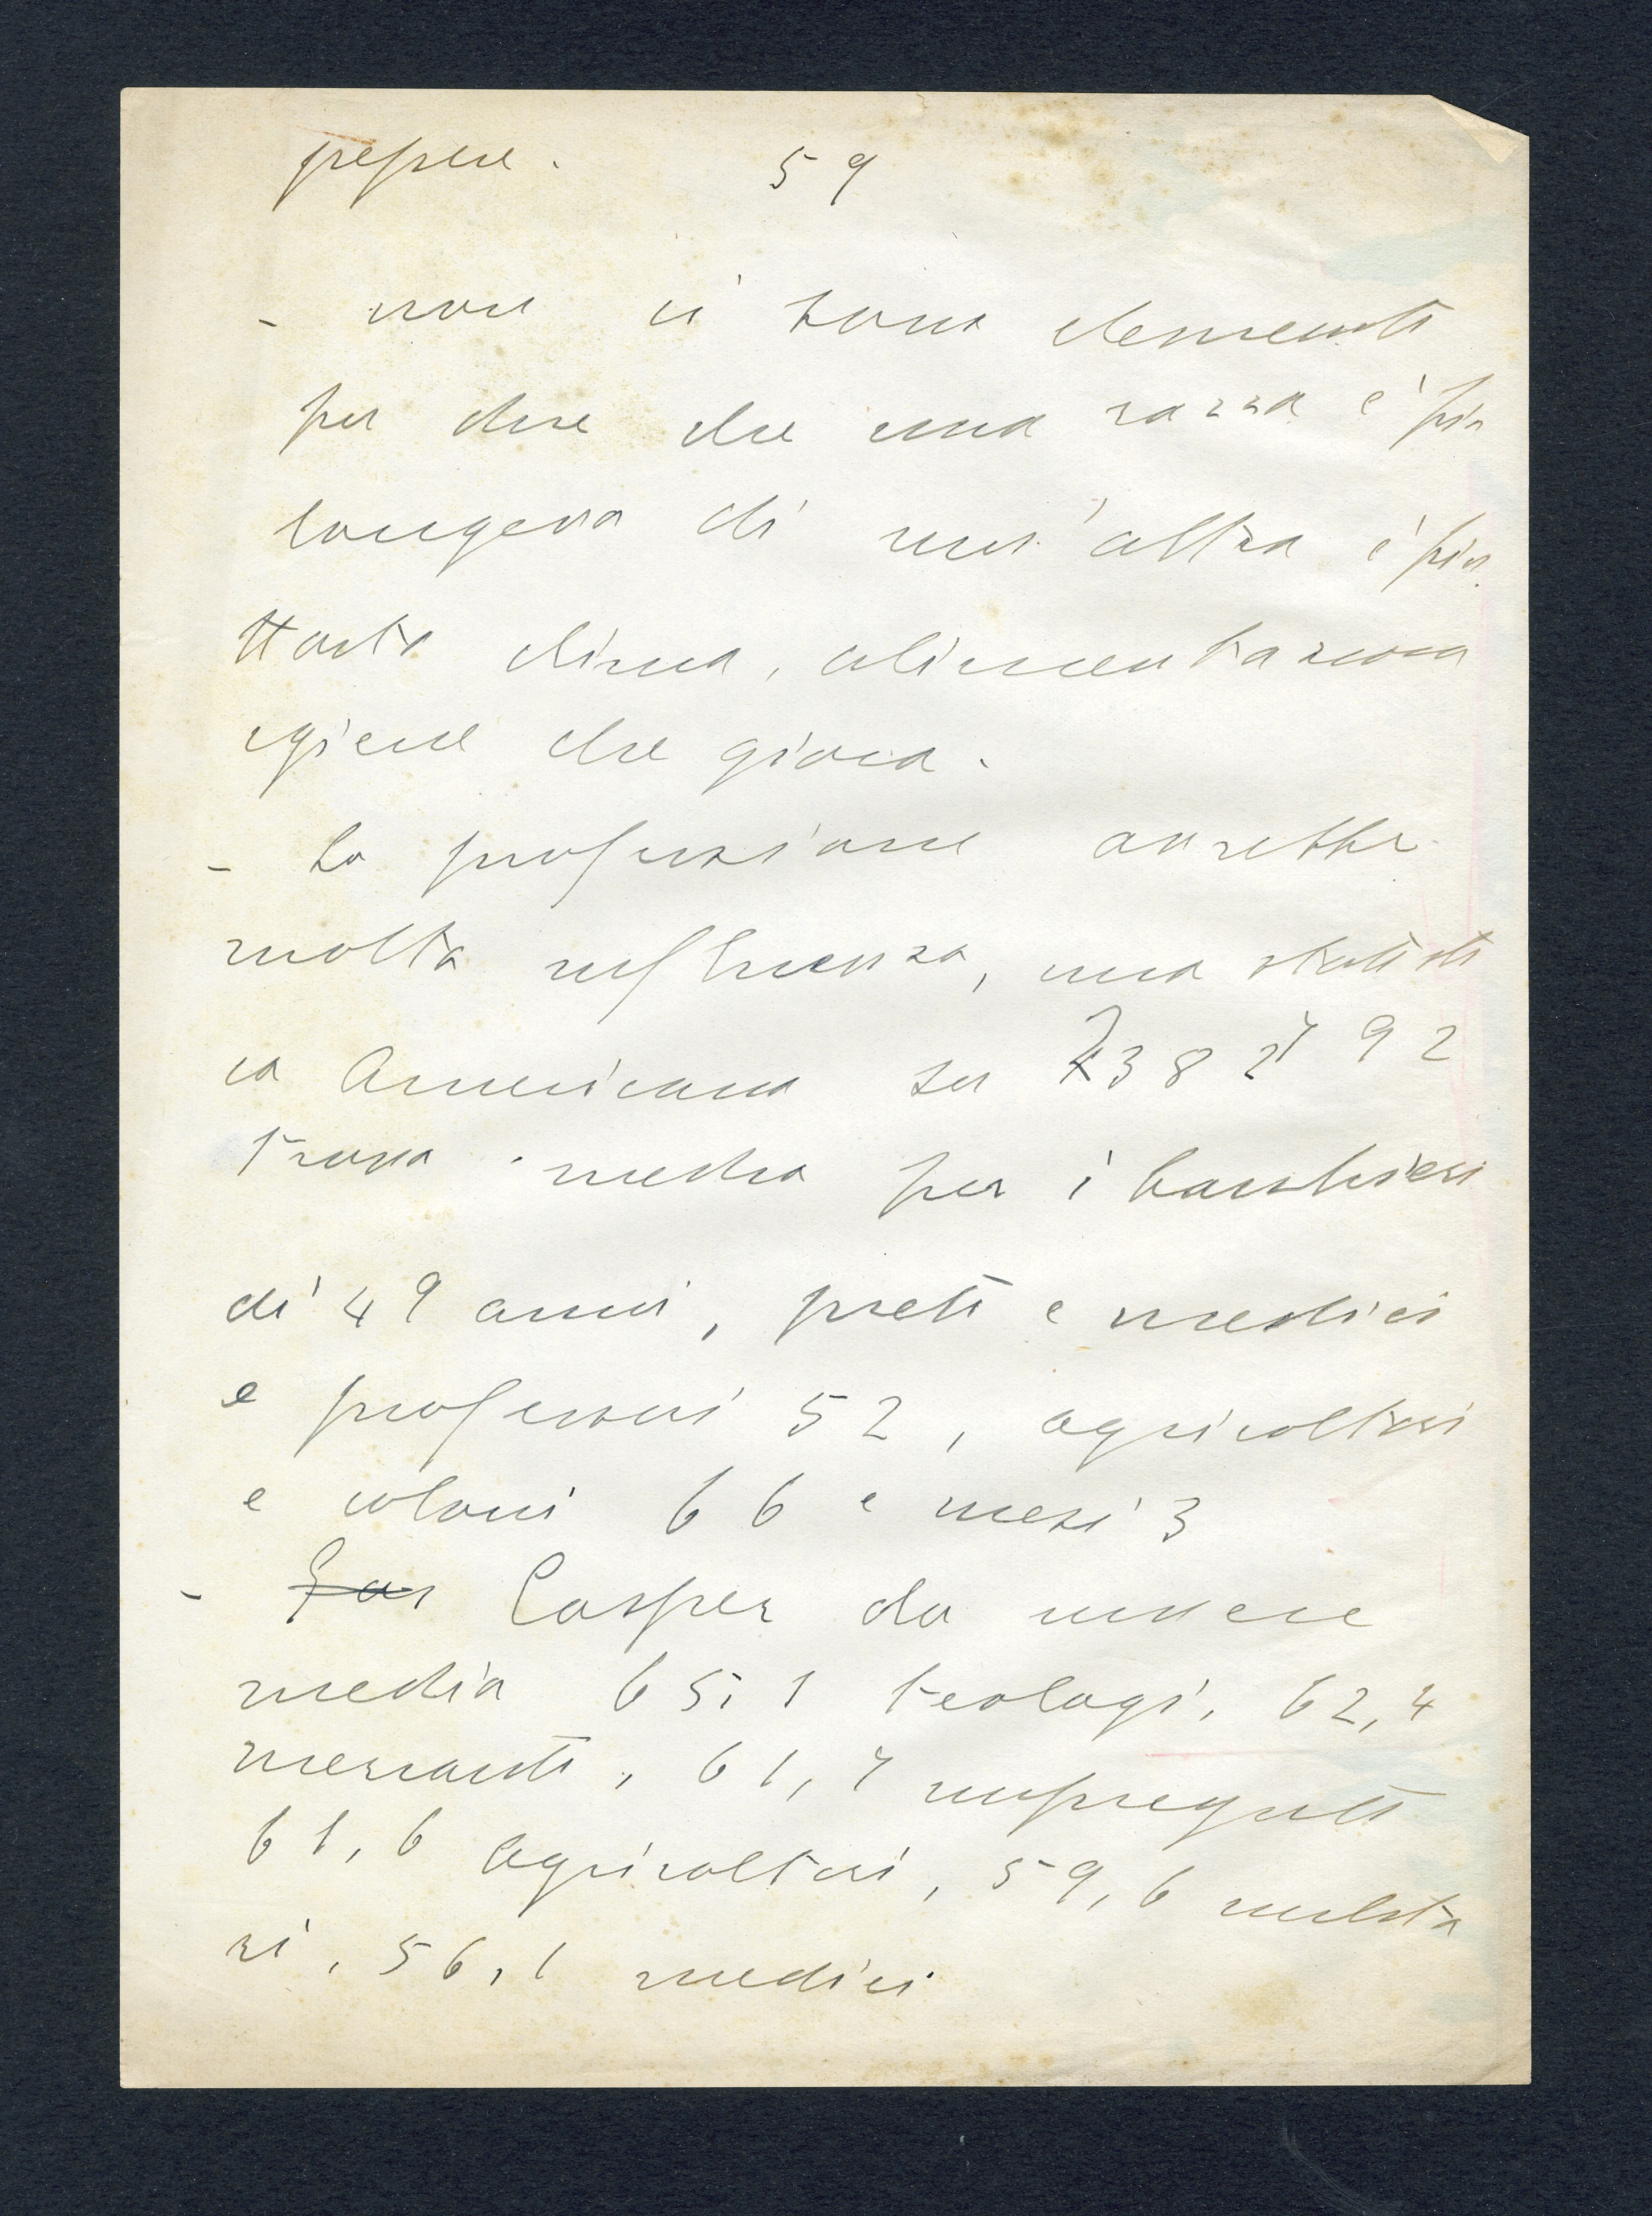 59
- non ci sono elementi
per dire che una razza è più
longeva di un'altra è piu
ttosto clima, alimentazione
igiene che gioca.
- La professione avrebbe
molta influenza, una statisti
ca Americana su 92
trova media per i banchieri
di 49 anni, preti e medici
e professori 52, agricoltori
e coloni 66 e mesi 3
- Casper da vivere
media 65,1 teologi, 62,4
mercanti, 61,7 impiegati
61,6 agricoltori, 59,6 milita
ri, 56,1 medici